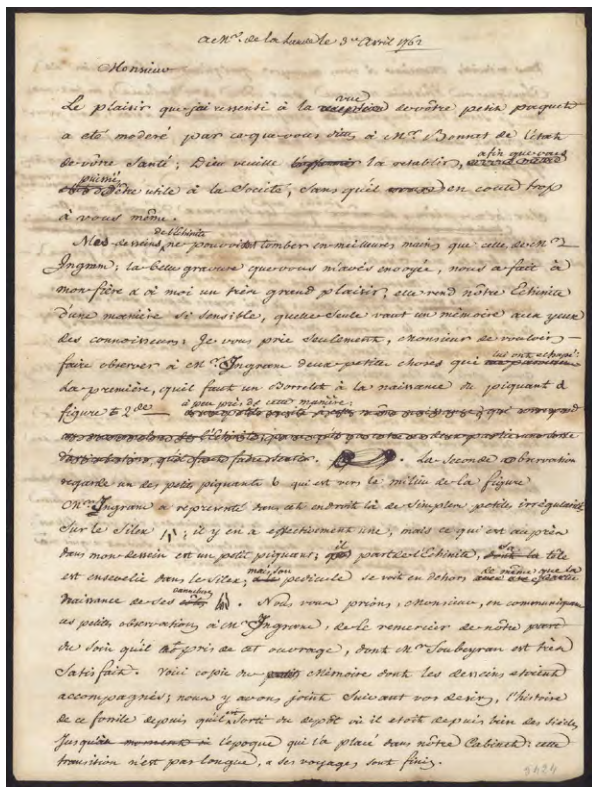 a Mr. de la Lande le 3me Avril 1762
Monsieur
vue
Le plaisir que j'ai ressenti à la de vôtre petit paquet
a eté moderé par ce que vous dites à Mr. Bonnet de l'état
afin que vous
de vôtre Santé; Dieu veuille la retablir,
puissiés
d'être utile à la Société, sans qu'il en coute trop
à vous même.
de l'Echinite
Mes desseins ne pouvoient tomber en meilleures mains que celle de Mr.
Ingram; la belle gravure que vous m'avés envoyée, nous a fait à
mon frère & à moi un très grand plaisir; elle rend nôtre Echinite
d'une manière si sensible, qu'elle seule vaut un mémoire aux yeux
des connoisseurs; Je vous prie seulement, Monsieur de vouloir
lui ont echapé:
faire observer à Mr. Ingram deux petites choses qui
La première, qu'il faut un Borrelet à la naissance du piquant d
à peu près de cette manière,
figure 2de
. La seconde observation
regarde un des petits piquants b qui est vers le milieu de la figure
Mr. Ingram a representé dans cet endroit là de simples petites irrégularités
sur le Silex; il y en a effectivement une, mais ce qui est auprès
il
dans mon dessein est un petit piquant; part de l'Echinite, la tête
mais son
de même que la
est ensevelie dans le Silex; pedicule se voit en dehors
cannelures
naissance de ses . Nous vous prions, Monsieur, en communiquant
ces petites observations à Mr. Ingram, de le remercier de nôtre part
du soin qu'il a pris de cet ouvrage, dont Mr. Soubeyran est très
satisfait. Voici copie du petit Mémoire dont les desseins etoient
accompagnés; nous y avons joint suivant vos desirs, l'histoire
de ce fossile depuis qu'il est sorti du depôt où il etoit depuis bien des siècles
jusqu'à l'epoque qui l'a placé dans nôtre Cabinet: cette
transition n'est pas longue, & ses voyages sont finis.